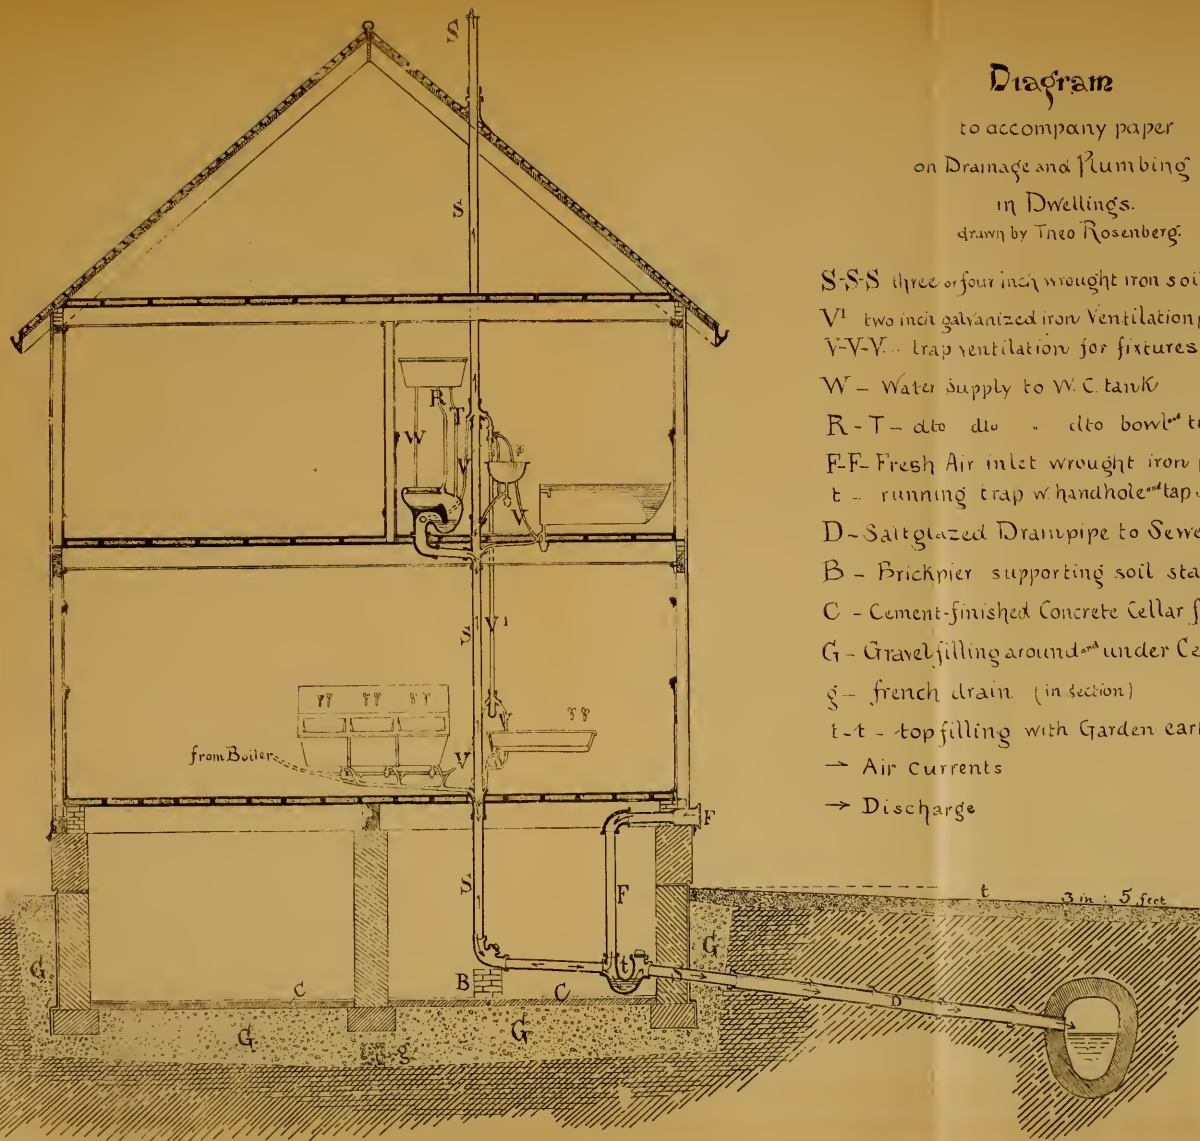 Diagram
to accompany paper
on Drainage and Plumbing
in Dwellings.
drawn by Theo Rosenberg.
S-S-S three or four inch wrought iron soil
V¹ two inch galvanized iron Ventilation
V-V-V.. trap ventilation for fixtures
W - Water Supply to W.C. tank
R - T - dto dto " dto bowl and
F-F- Fresh Air inlet wrought iron
t - running trap w. handhole and tap
D - Saltglazed Drainpipe to Sewe
B - Brickpier supporting soil sta
C - Cement-finished Concrete Cellar f
G - Gravel filling around and under Ce
g - french drain (in section)
t-t - top filling with Garden ear
→ Air Currents
→ Discharge
S
S
R
T
W
V
V
S
V¹
from Boiler
V
F
S
F
t
3 in : 5 feet
G
G
t
B
C
C
S
D
G
G
g